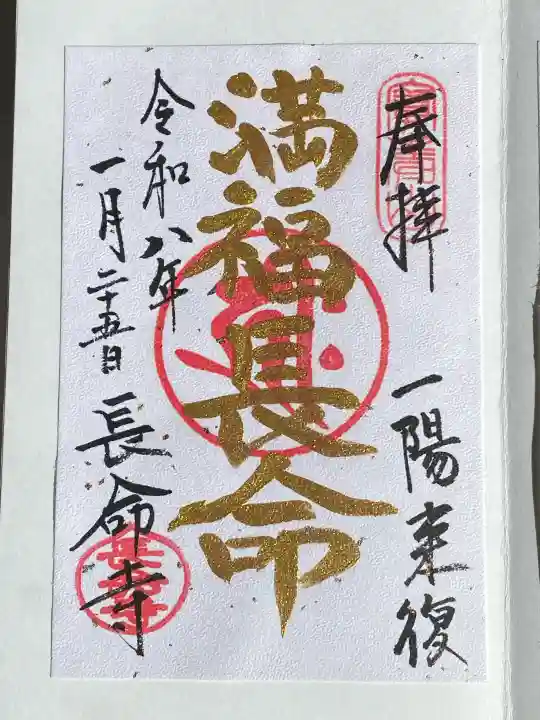 奉拝
一陽来復
満福長命
令和八年
一月二十五日
長命寺